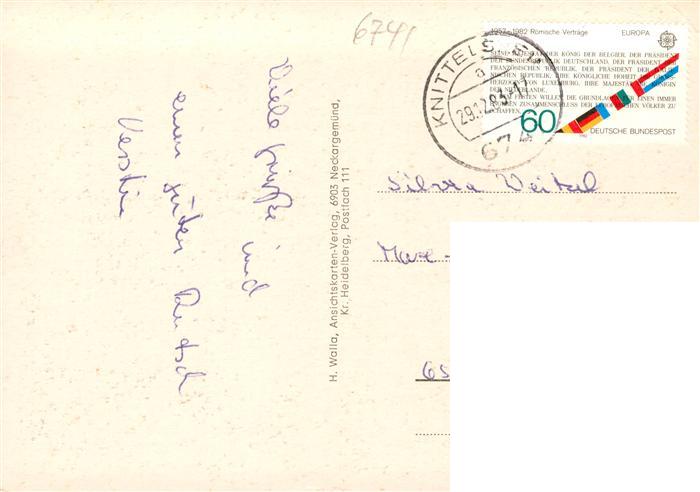 6741
Viele Grüße und
einen guten Rutsch
Kerstin
H. Walla, Ansichtskarten-Verlag, 6903 Neckargemünd,
Kr. Heidelberg, Postfach 111
KNITTELS
a
29.12.83-17
674
1957-1982 Römische Verträge EUROPA
SEINE MAJESTÄT DER KÖNIG DER BELGIER, DER PRÄSIDENT
DER BUNDESREPUBLIK DEUTSCHLAND, DER PRÄSIDENT DER
FRANZÖSISCHEN REPUBLIK, DER PRÄSIDENT DER
NISCHEN REPUBLIK, IHRE KÖNIGLICHE HOHEIT
HERZOGIN VON LUXEMBURG, IHRE MAJESTÄT KÖNIGIN
DER NIEDERLANDE,
FESTEN WILLEN, DIE GRUNDLAGEN FÜR EINEN IMMER
ENGEREN ZUSAMMENSCHLUSS DER EUROPÄISCHEN VÖLKER ZU
SCHAFFEN
60
DEUTSCHE BUNDESPOST
Silvia Veitel
Max-
65